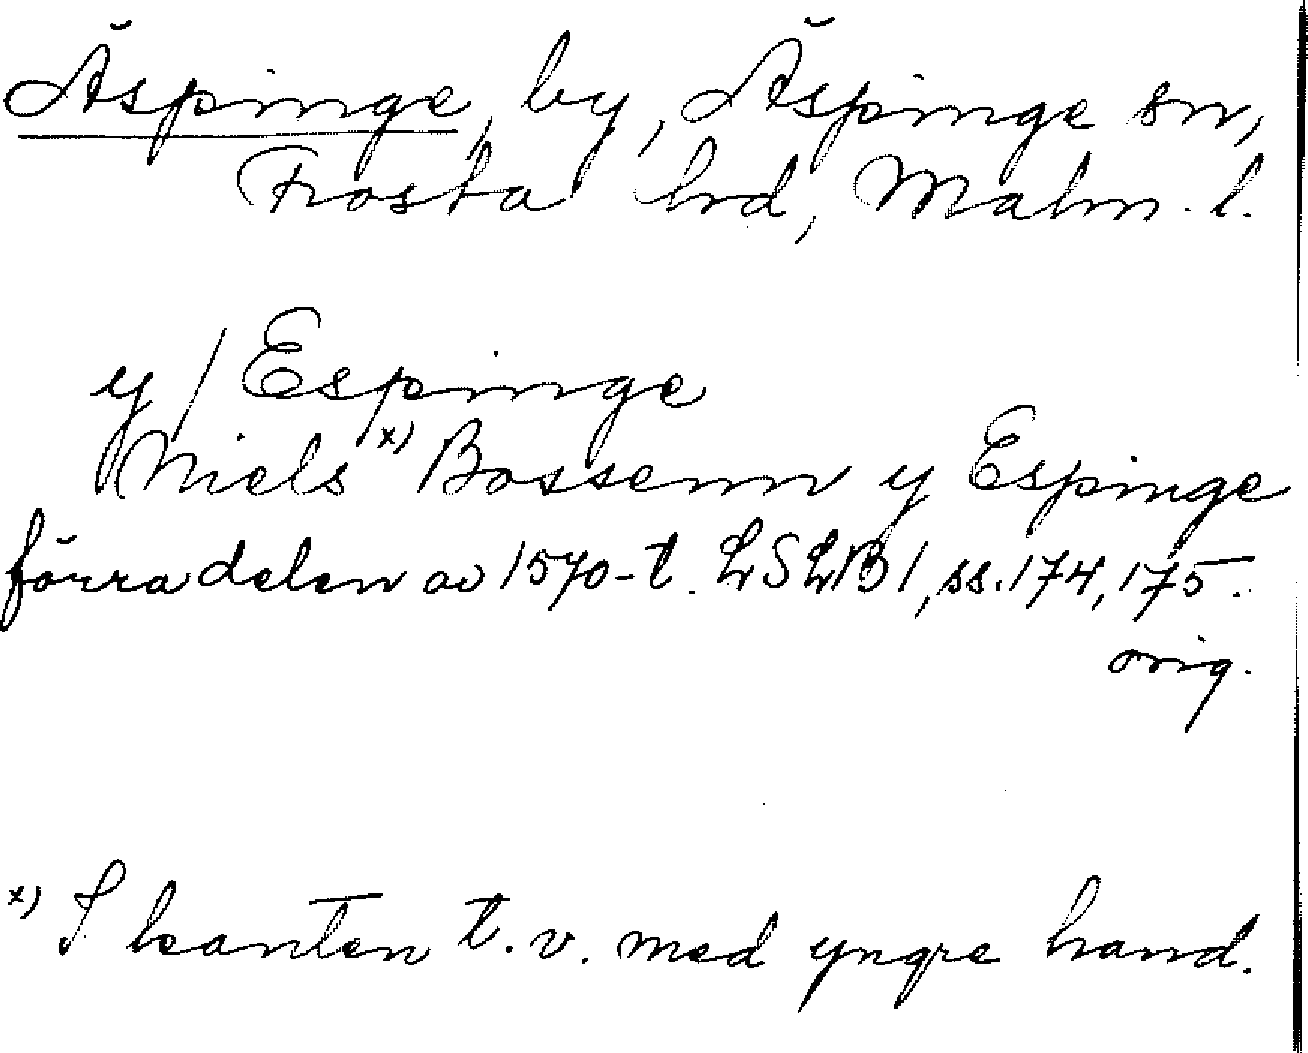 Äspinge, by, Äspinge sn,
Frosta hrd, Malm. l.
y / Espinge
Niels x) Bossenn y Espinge
förra delen av 1570-t. LSLB 1, ss. 174, 175.
orig.
x) I kanten t.v. med yngre hand.